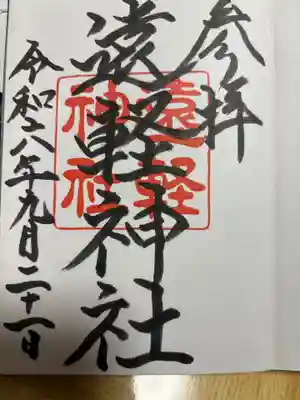 参拝
遠軽神社
遠軽
神社
令和六年九月二十一日